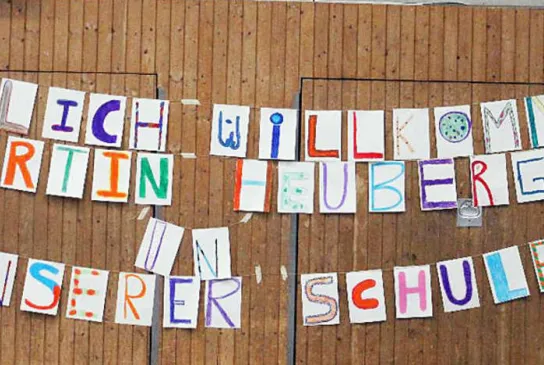 LICH WILLKOMM
RTIN HEUBERG
IN
SERER SCHULE